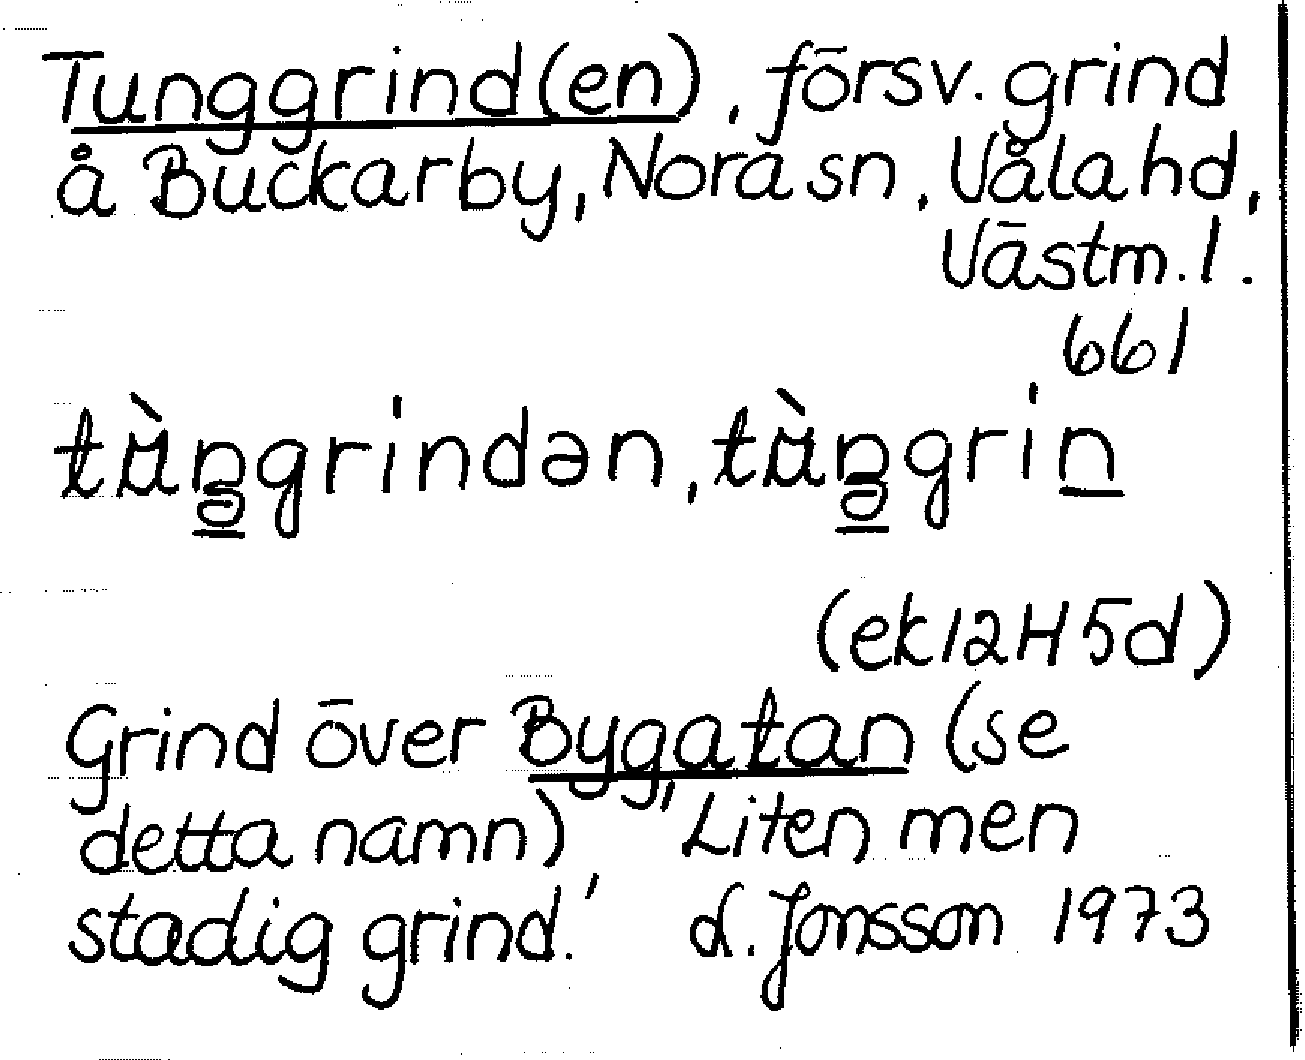 Tunggrind(en), försv. grind
å Buckarby, Nora sn, Våla hd,
Västm. l.
661
tùŋgrindən, tùŋgrin
(ek 12H 5d)
Grind över Bygatan (se
detta namn) 'Liten men
stadig grind.' d. Jonsson 1973